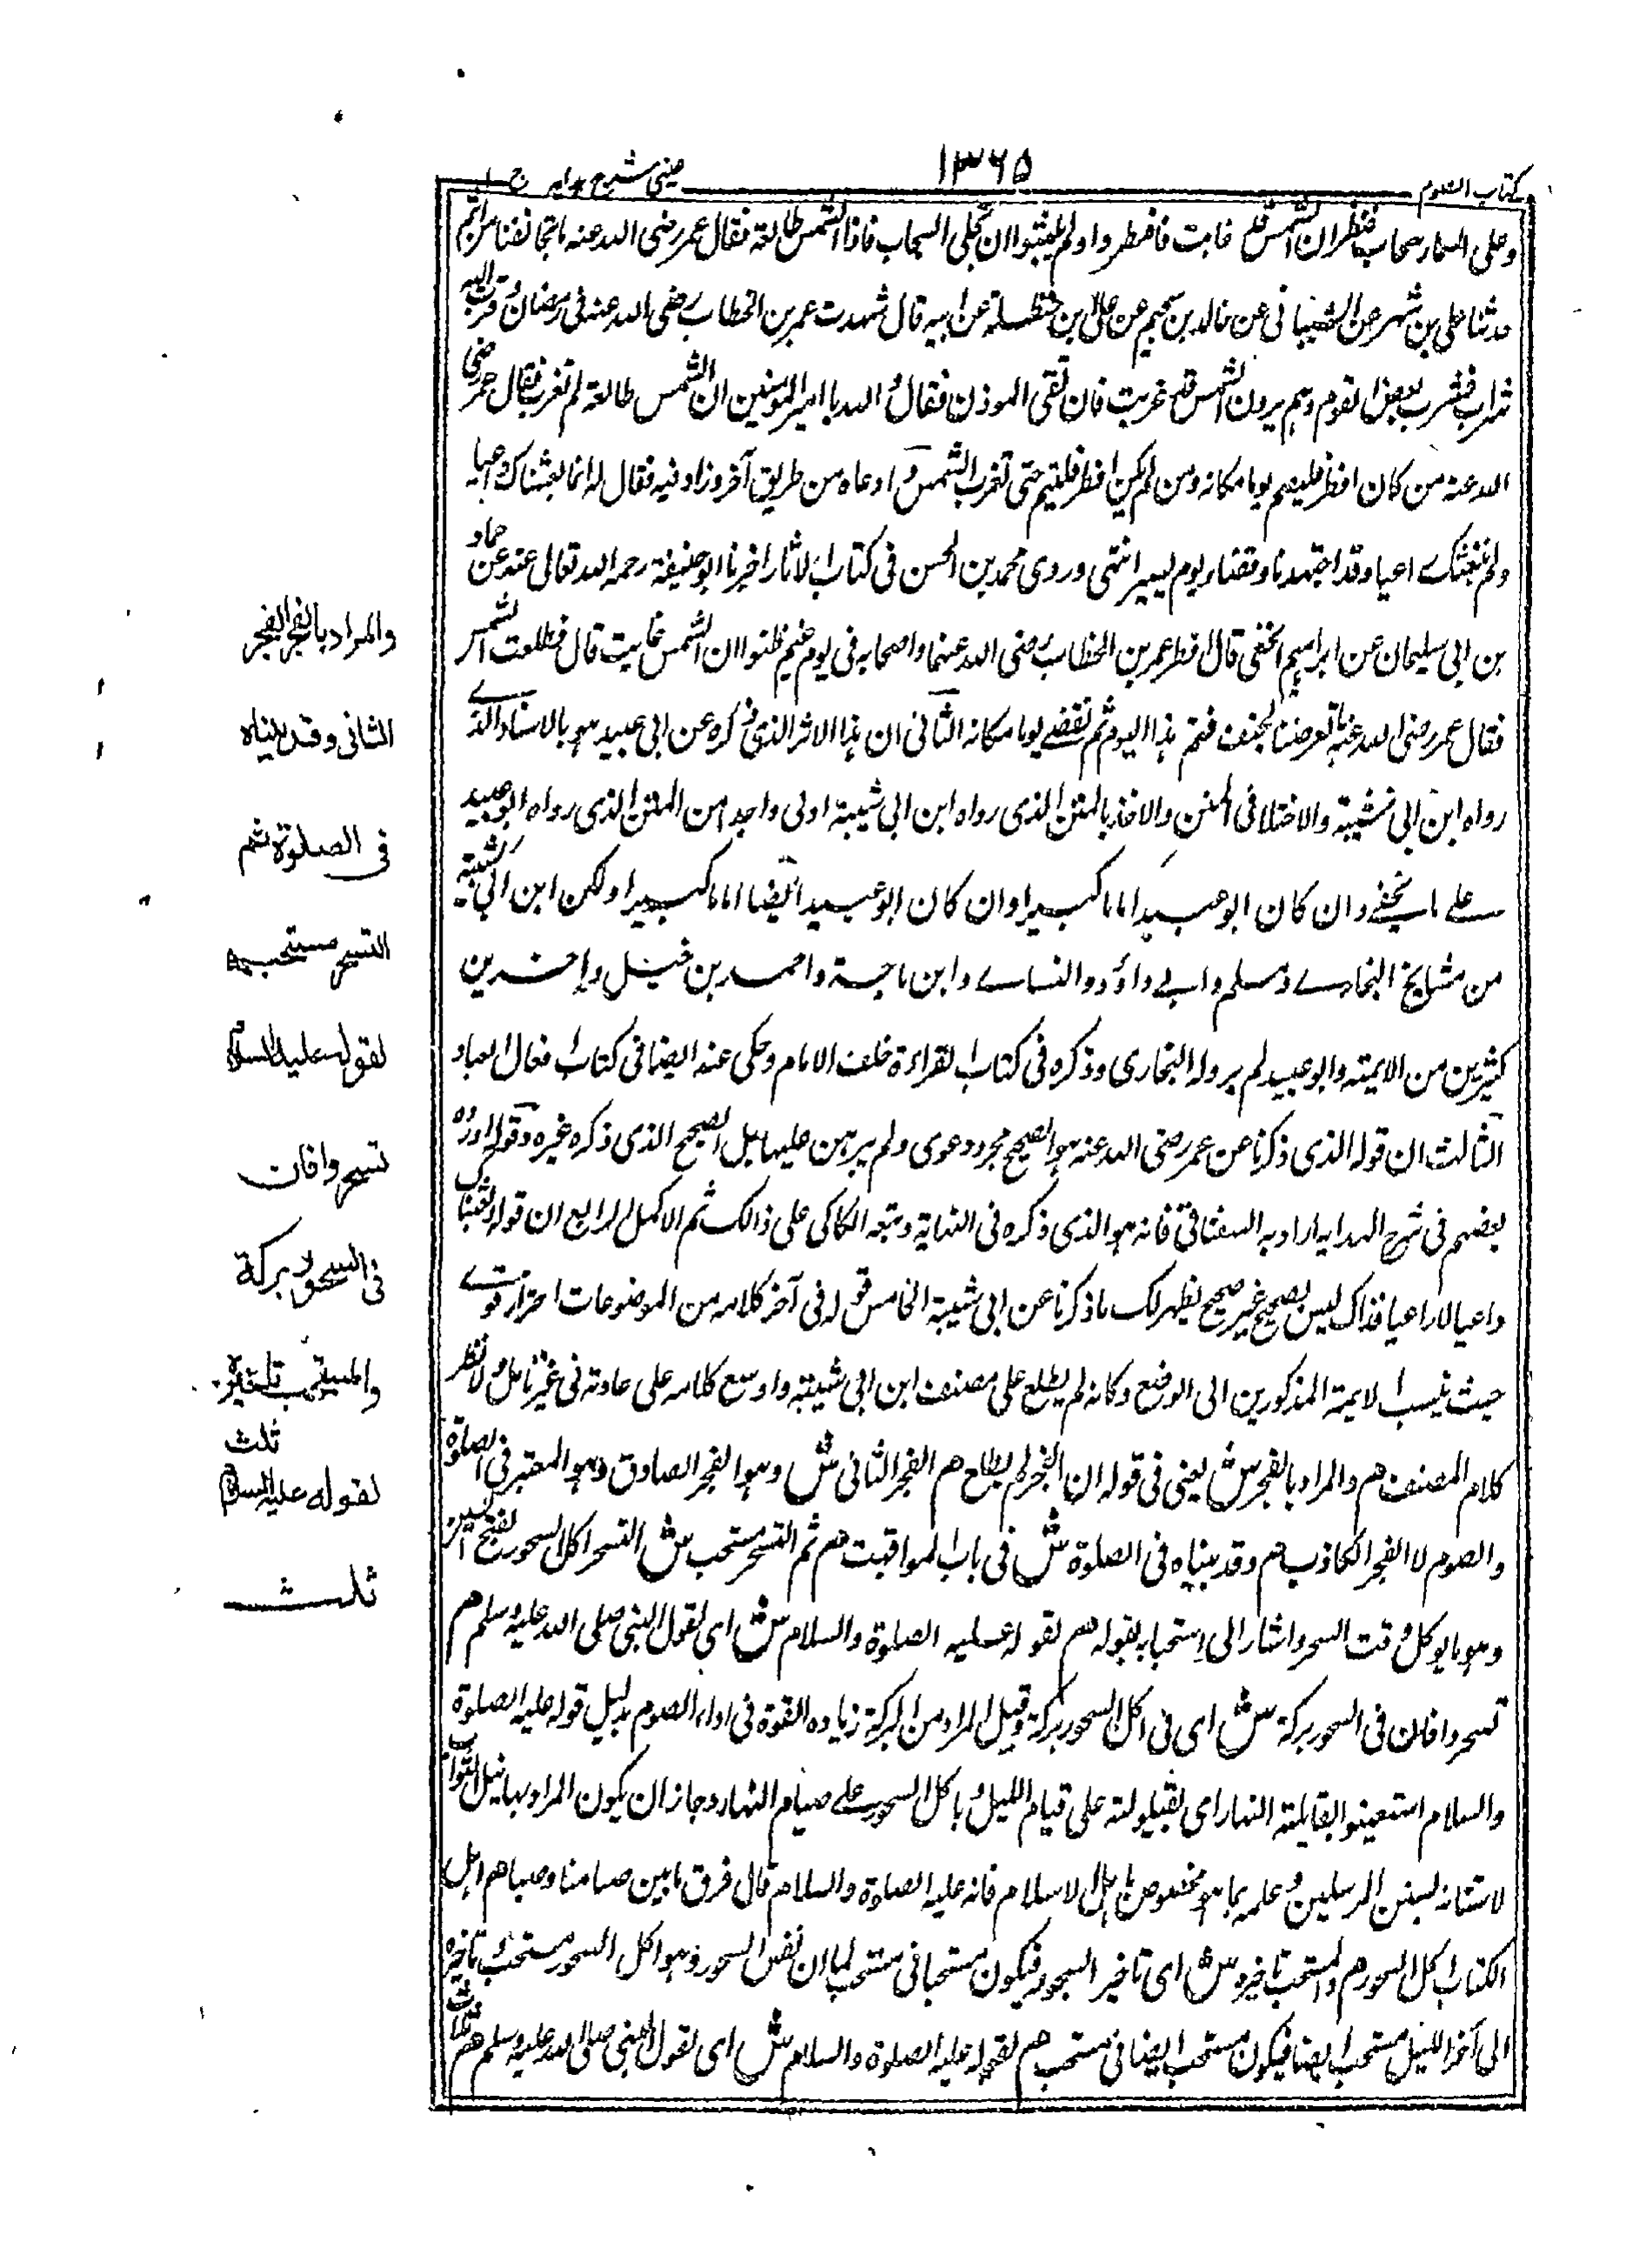 كتاب الصوم
١٣٦٥
عينى شرح هدايه ج ١
وعلى السماء سحاب فظن ان الشمس قد غابت فافطروا ولم يلبثوا ان تجلى السحاب فاذا الشمس طالعة فقال عمر رضى الله عنه ما تجانفنا من اثم
حدثنا على بن شهر عن الشيبانى عن خالد بن سحيم عن على بن حنظلة عن ابيه قال شهدت عمر بن الخطاب رضى الله عنه فى رمضان وقرب اليه
شراب فشرب بعض القوم وهم يرون الشمس قد غربت فان تقى الموذن فقال والله يا امير المومنين ان الشمس طالعة لم تغرب فقال عمر رضى
الله عنه من كان افطر فليصم يوما مكانه ومن لم يكن افطر فليتم حتى تغرب الشمس واوعاه من طريق آخر وزاد فيه فقال له انما بعثناك داعيا
ولم نبعثك راعيا وقد اجتهدنا وقضاء يوم يسير انتهى وروى محمد بن الحسن فى كتاب الاثار اخبرنا ابو حنيفة رحمه الله تعالى عنه عن حماد
بن ابى سليمان عن ابراهيم النخعى قال افطر عمر بن الخطاب رضى الله عنهما واصحابه فى يوم غيم ظنوا ان الشمس غابت قال فطلعت الشمس
فقال عمر رضى الله عنه ما تعرضنا لجنف فتم هذا اليوم ثم نقضے يوما مكانه الثانى ان هذا الاثر الذى ذكره عن ابى عبيد هو بالاسناد الذے
رواه ابن ابى شيبة والاختلاف فى المتن والاخذ بالمتن الذى رواه ابن ابى شيبة اولى واجدر من المتن الذى رواه ابو عبيد
علے ما يخفے وان كان ابو عبيد اماما كبيرا وان كان ابو عبيد ايضا اماما كبيرا ولكن ابن ابى شيبة
من مشايخ البخارے ومسلم وابے داؤد والنساے وابن ماجة واحمد بن حنبل وآخرين
كثيرين من الايمة وابو عبيد لم يرو له البخارى وذكره فى كتاب القراءة خلف الامام وحكى عنه ايضا فى كتاب افعال العباد
الثالث ان قوله الذى ذكرنا عن عمر رضى الله عنه هو الصحيح مجرد دعوى ولم يبرهن عليها بل الصحيح الذى ذكره غيره وقوله اورده
بعضهم فى شرح الهدايه اراد به السغناقى فانه هو الذى ذكره فى النهاية وتبعه الكاكى على ذالك ثم الاكمل الرابع ان قوله بعثناك
داعيا لا راعيا فذاك ليس بصحيح غير صحيح يظهر لك ما ذكرنا عن ابى شيبة الخامس قوله فى آخر كلامه من الموضوعات احترازقوے
حيث ينسب الايمة المذكورين الى الوضع وكانه لم يطلع على مصنف ابن ابى شيبة واوسع كلامه على عادته فى غير تامل ولا نظر
كلام المصنف هم والمراد بالفجر ش يعنى فى قوله ان الفجر لم يطلع هم الفجر الثانى ش وهو الفجر الصادق وهو المعتبر فى الصلوة
والصوم لا الفجر الكاذب هم وقد بيناه فى الصلوة ش فى باب المواقيت هم ثم التسحر مستحب ش التسحر اكل السحور بفتح السين
وهو ما يوكل وقت السحر واشار الى استحبابه بقوله هم لقوله عليه الصلوة والسلام ش اى لقول النبى صلى الله عليه وسلم هم
تسحروا فان فى السحور بركة ش اى فى اكل السحور بركة وقيل المراد من البركة زياده القوة فى اداء الصوم بدليل قوله عليه الصلوة
والسلام استعينوا بقايلة النهار اى بقيلولته على قيام الليل وباكل السحور علے صيام النهار وجاز ان يكون المراد بها نيل الثواب
لاستنانه بسنن المرسلين وعلمه بما هو مخصوص باهل الاسلام فانه عليه الصلوة والسلام قال فرق ما بين صيامنا وصيام اهل
الكتاب اكل السحور هم والمستحب تاخيره ش اى تاخير السحور فيكون مستحبا فى مستحب لما ان نفس السحور وهو اكل السحور مستحب وتاخيره
الى آخر الليل مستحب ايضا فيكون مستحب ايضا فى مستحب هم لقوله عليه الصلوة والسلام ش اى لقول النبى صلى الله عليه وسلم هم ثلاث
والمراد بالفجر الفجر
الثانى وقد بيناه
فى الصلوة ثم
التسحر مستحب
لقوله عليه السلام
تسحروا فان
فى السحور بركة
والمستحب تاخيره
ثلث
لقوله عليه السلام
ثلث